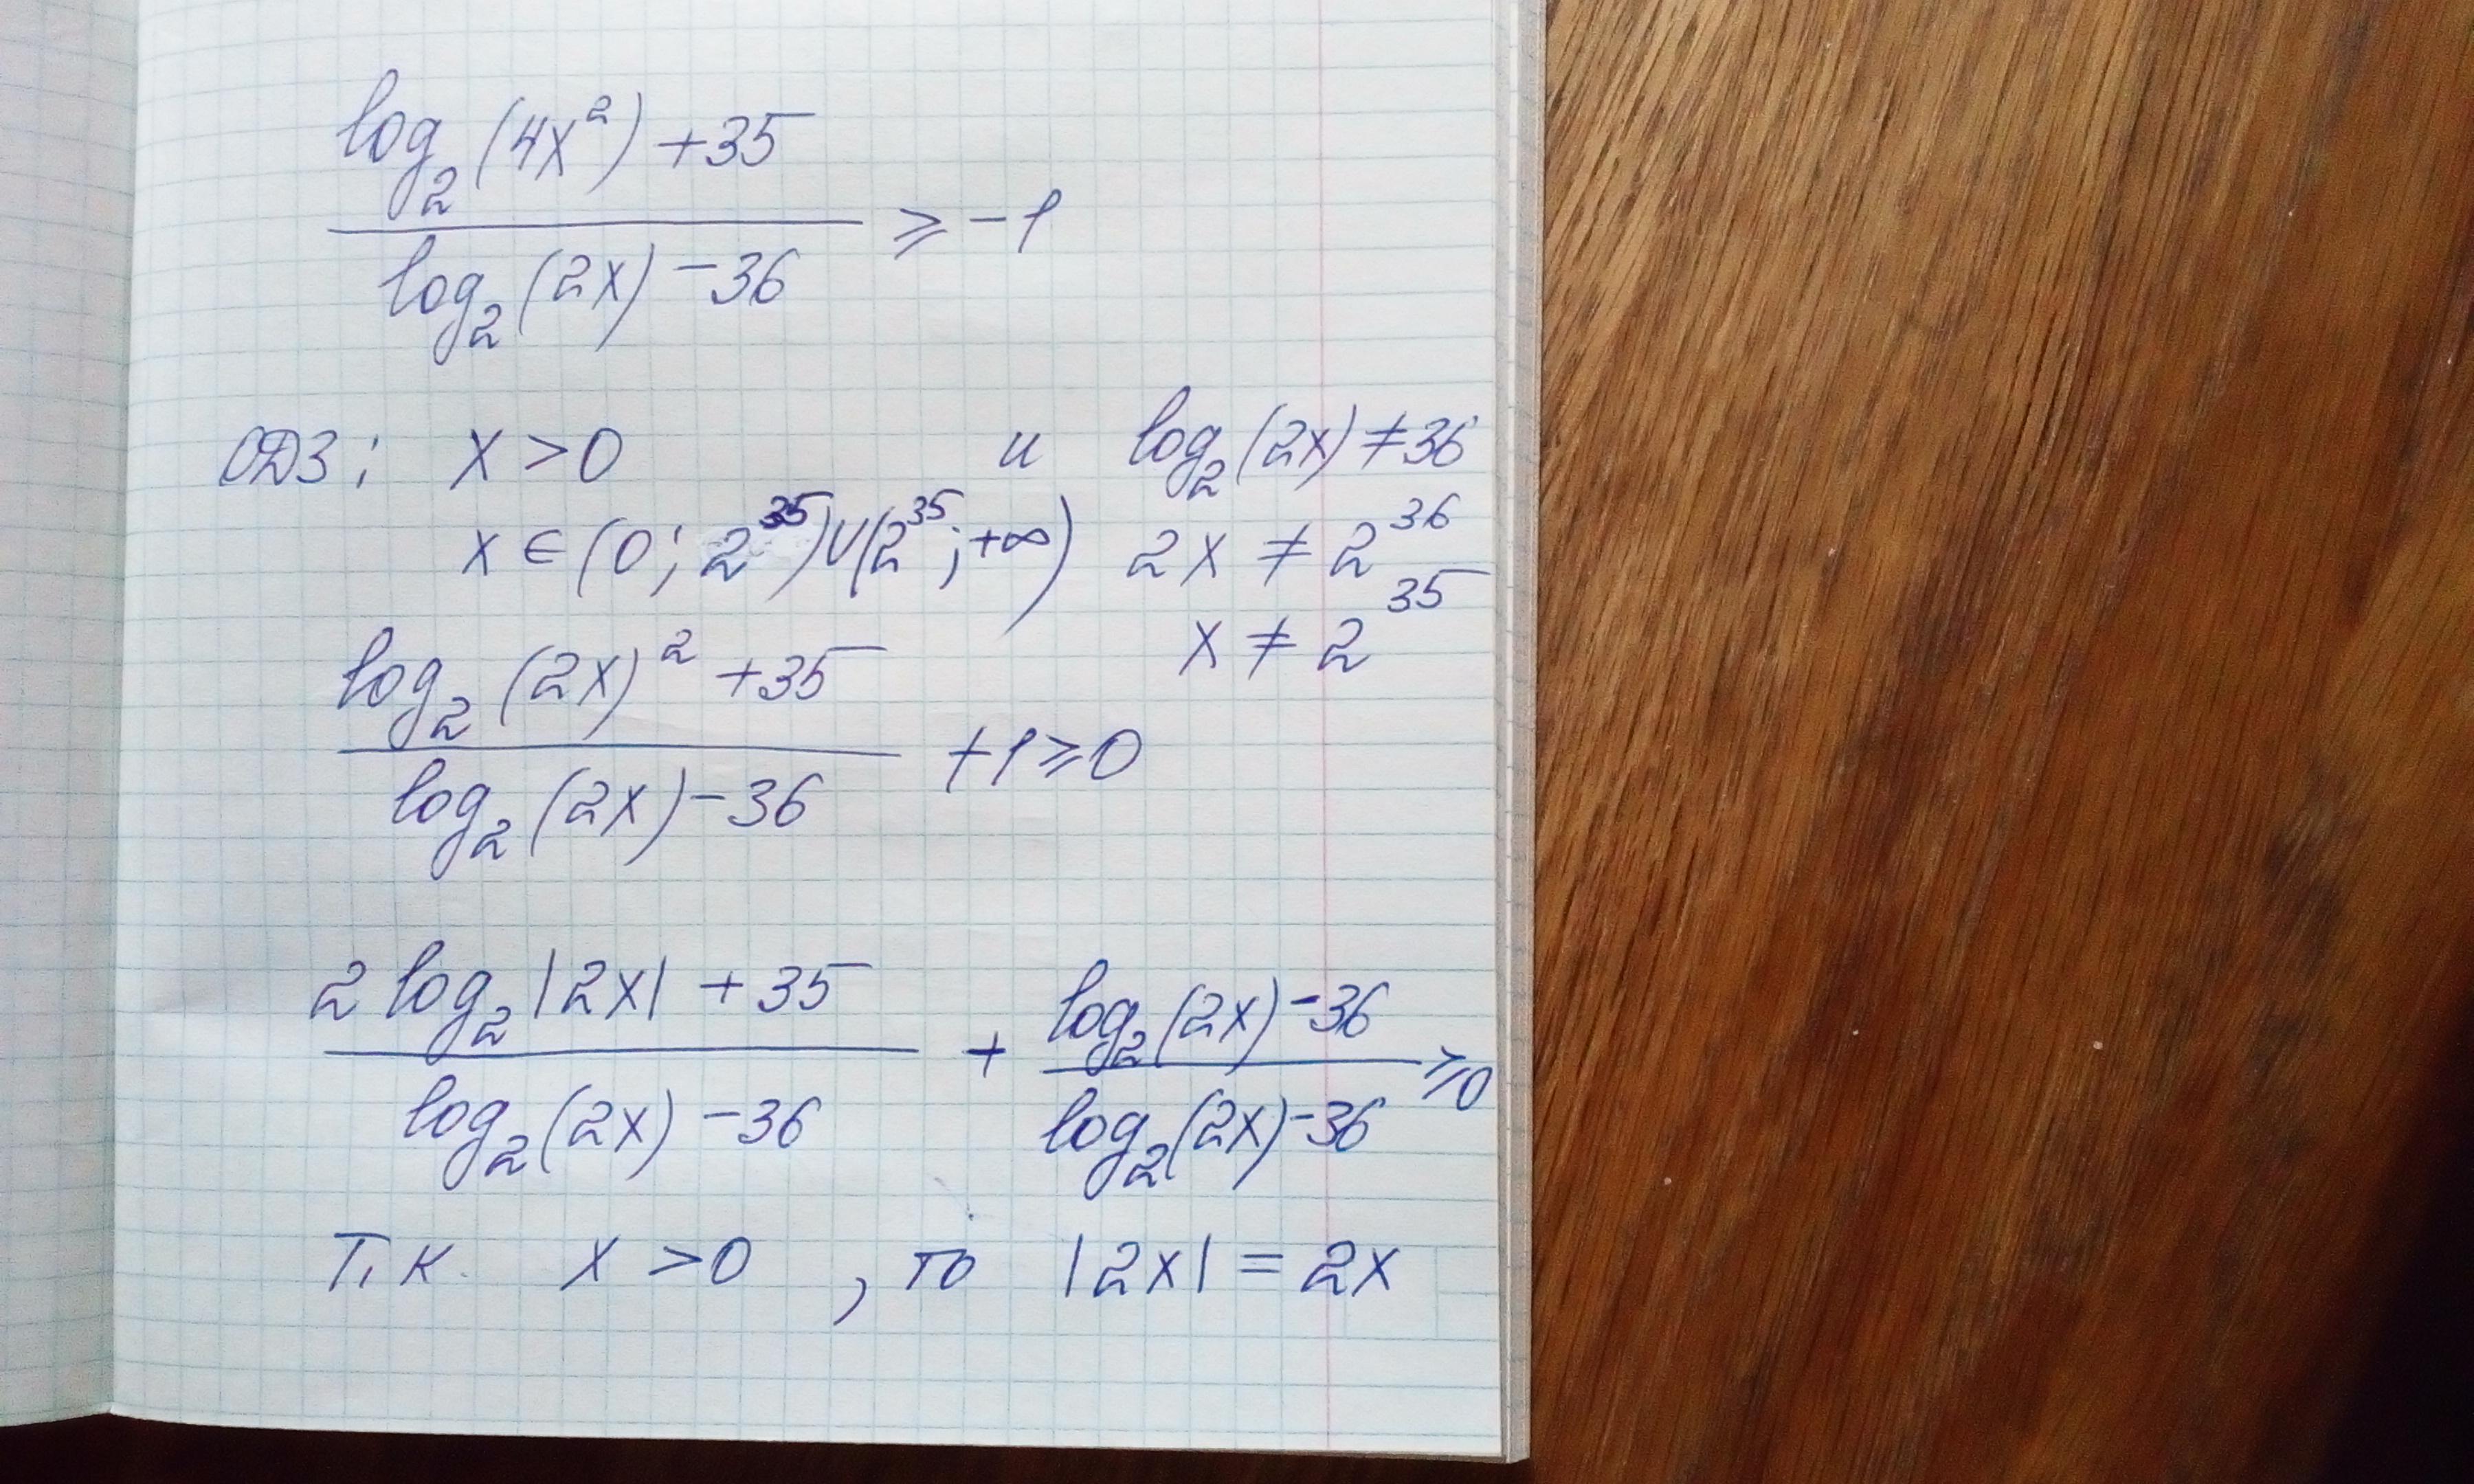 log₂(4x²) + 35
─────────── ≥ -1
log₂(2x) - 36
ОДЗ: x > 0 и log₂(2x) ≠ 36
x ∈ (0; 2³⁵) ∪ (2³⁵; +∞) 2x ≠ 2³⁶
x ≠ 2³⁵
log₂(2x)² + 35
─────────── + 1 ≥ 0
log₂(2x) - 36
2 log₂|2x| + 35   log₂(2x) - 36
─────────── + ─────────── ≥ 0
log₂(2x) - 36   log₂(2x) - 36
Т.к. x > 0, то |2x| = 2x